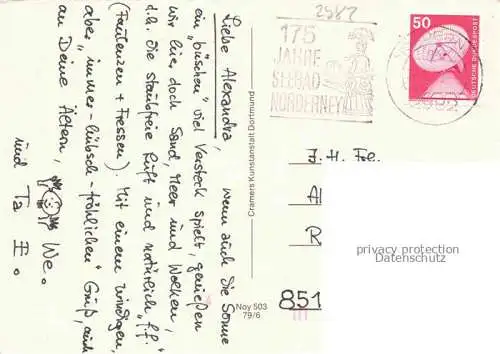 Liebe Alexandra,
wenn auch die Sonne
ein "bißchen" viel Versteck spielt, genießen
wir hier doch Sand, Meer und Wolken,
d.h. die staubfreie Luft und natürlich f.f.
(Faulenzen + Fressen). Mit einem windigen,
aber "immer-hübsch-fröhlichen" Gruß, auch
an Deine Eltern,
We.
und Ta E.
Cramers Kunstanstalt Dortmund
Noy 503
79/6
2982
175
JAHRE
SEEBAD
NORDERNEY
50
DEUTSCHE BUNDESPOST
J. H. Frl.
Al
R
851
privacy protection
Datenschutz